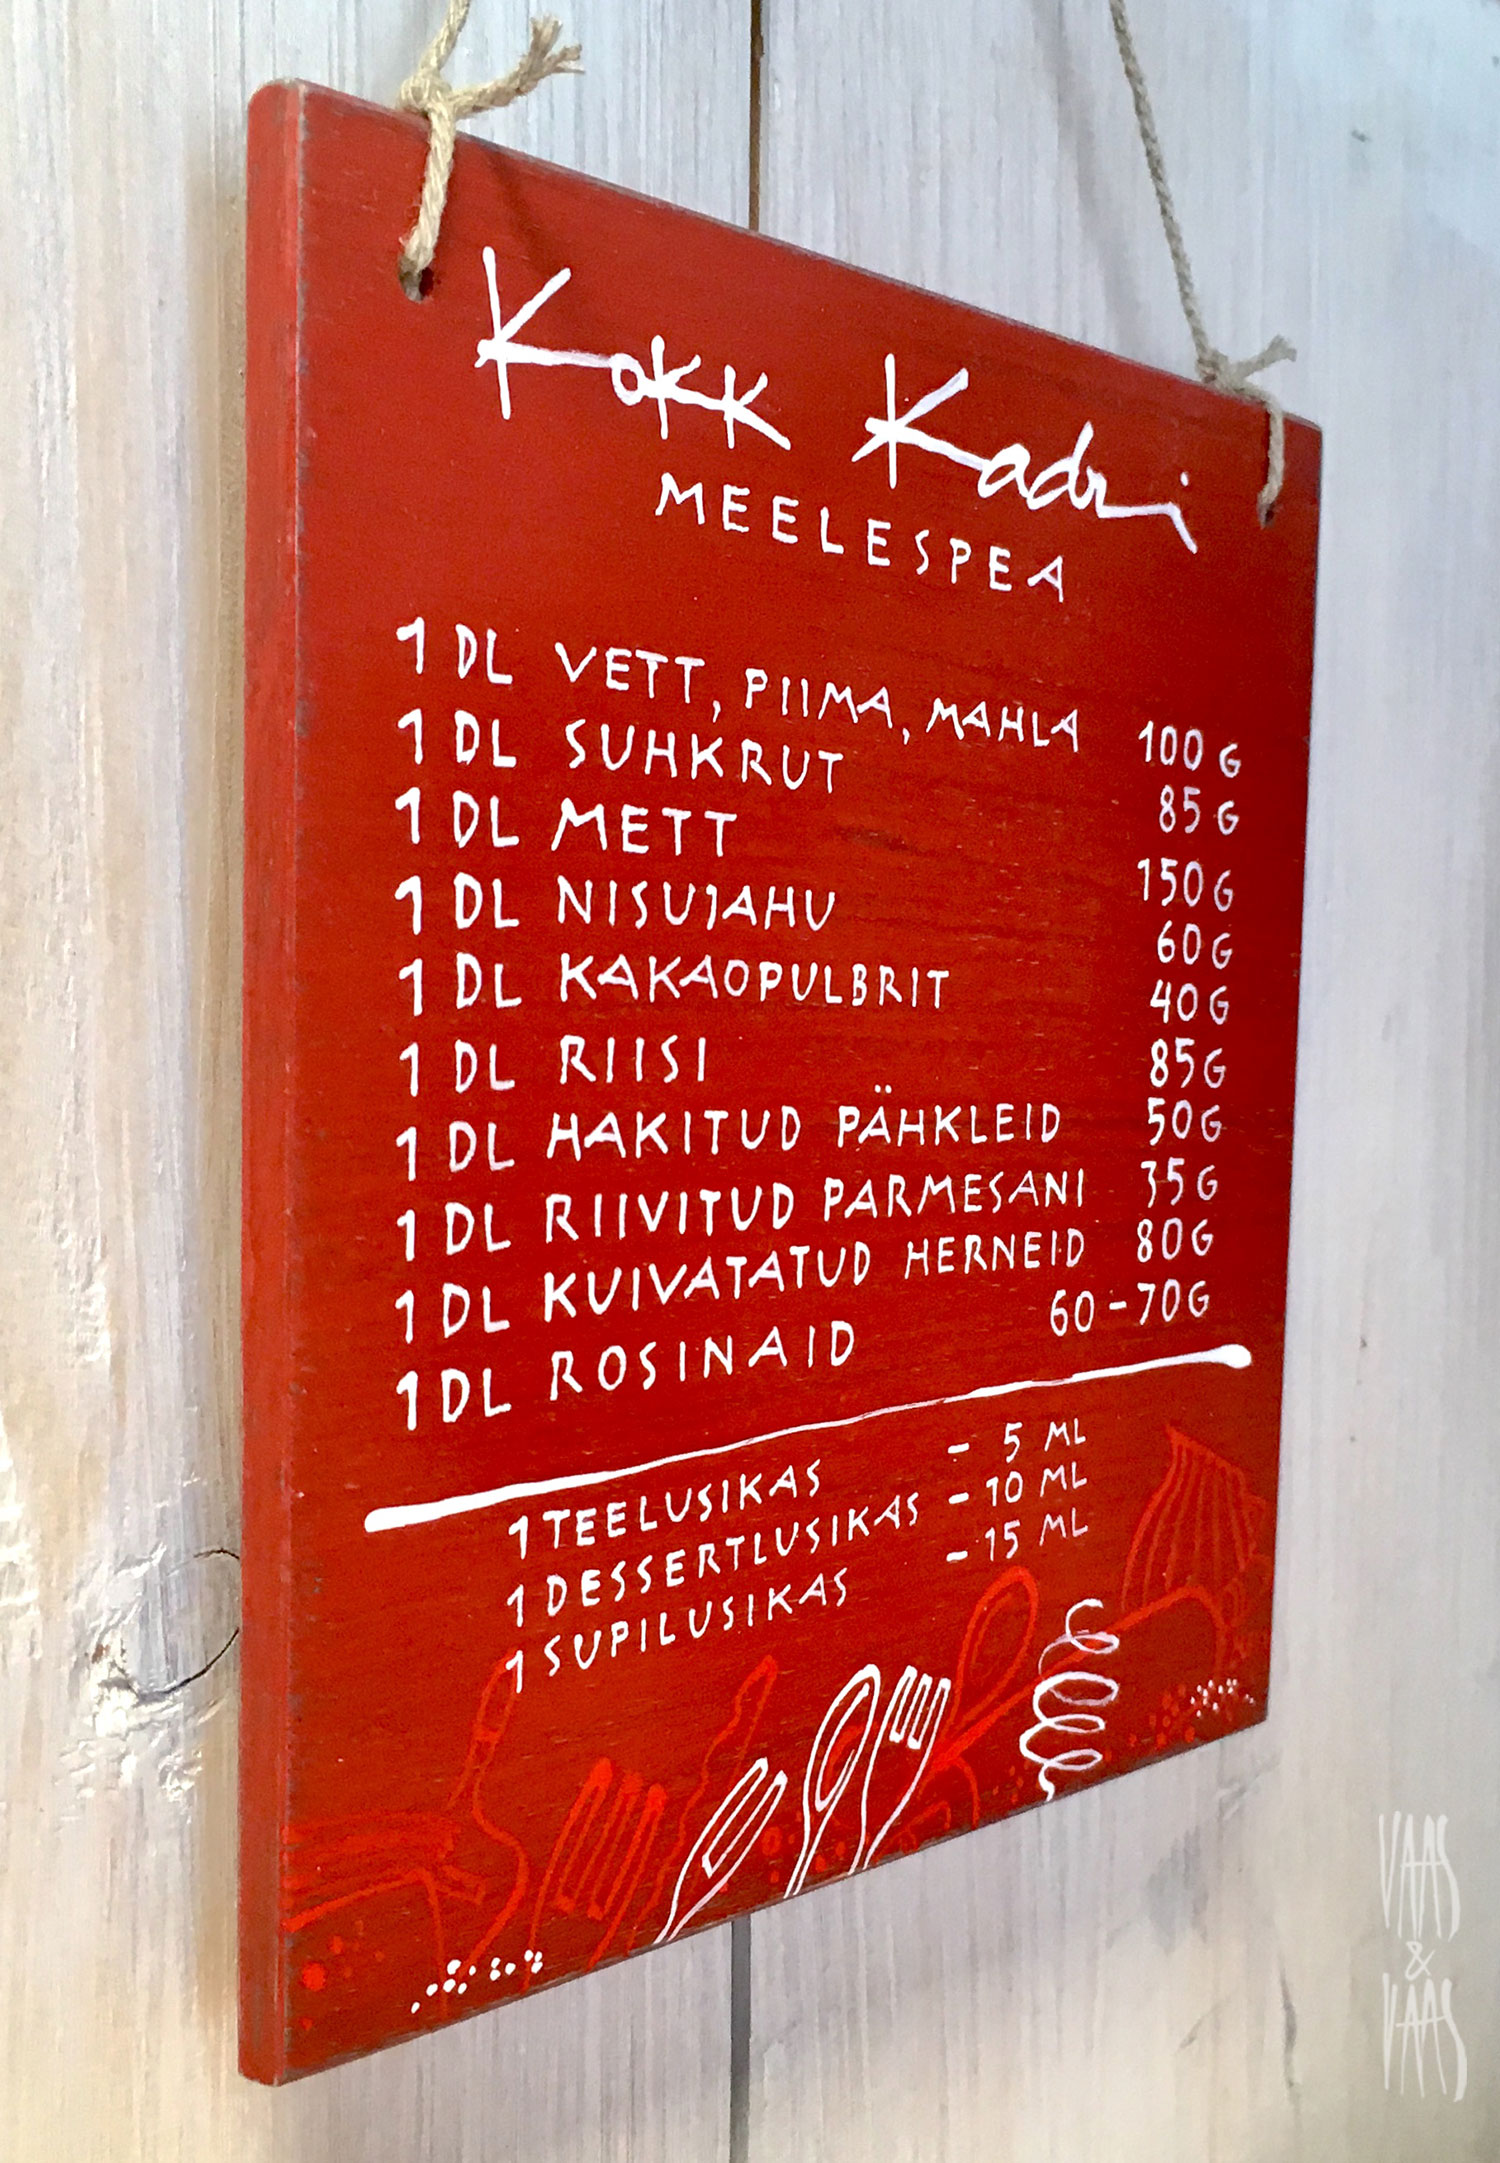 Kokk Kadri
MEELESPEA
1 DL VETT, PIIMA, MAHLA 100 G
1 DL SUHKRUT 85 G
1 DL METT 150 G
1 DL NISUJAHU 60 G
1 DL KAKAOPULBRIT 40 G
1 DL RIISI 85 G
1 DL HAKITUD PÄHKLEID 50 G
1 DL RIIVITUD PARMESANI 35 G
1 DL KUIVATATUD HERNEID 80 G
1 DL ROSINAID 60-70 G
1 TEELUSIKAS - 5 ML
1 DESSERTLUSIKAS - 10 ML
1 SUPILUSIKAS - 15 ML
VAAS
&
VAAS